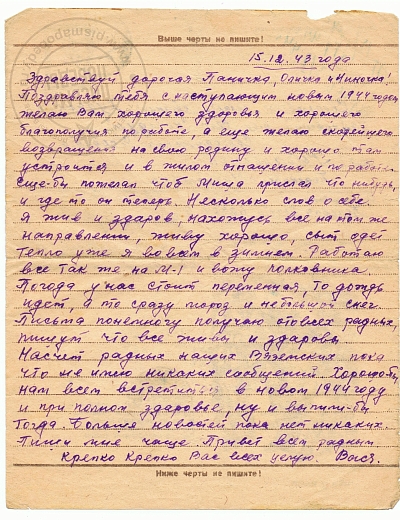 Выше черты не пишите!
15.12.43 года
Здравствуй дорогая Паничка, Оличка и Ниночка!
Поздравляю тебя с наступающим новым 1944 годом
желаю Вам, хорошего здоровья и хорошего
благополучия по работе, а еще желаю скорейшего
возвращения на свою родину и хорошо там
устроится и в жилом отношении и по работе.
Еще-бы пожелал чтоб Миша прислал что нибудь,
и где то он теперь. Несколько слов о себе.
Я жив и здоров, нахожусь все на том же
направлении, живу хорошо, сыт одет
тепло уже я во всем в зимнем. Работаю
все так же, на М-1 и вожу полковника.
Погода у нас стоит переменная, то дождь
идет, а то сразу мороз и небольшой снег.
Письма понемногу получаю от всех радных,
пишут что все живы и здоровы
Насчет радных наших Вяземских пока
что не имею никаких сообщений. Хорошо-бы
нам всем встретиться в новом 1944 году
и при полном здоровье, ну и выпили-бы
тогда. Больше новостей пока нет никаких.
Пиши мне чаще. Привет всем радным
Крепко Крепко Вас всех целую. Вася.
Ниже черты не пишите!